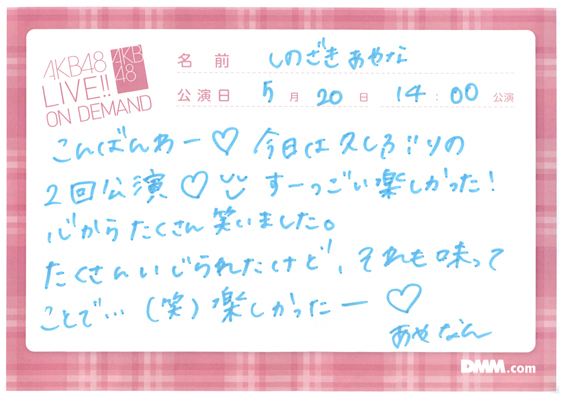 AKB48
LIVE!!
ON DEMAND
AKB
48
名前 しのざきあやな
公演日 5月20日 14:00公演
こんばんわー♡ 今日は久しぶりの
2回公演♡ すーっごい楽しかった!
心からたくさん笑いました。
たくさんいじられたけど、それも味って
ことで…(笑)楽しかったー♡
あやなん
DMM.com